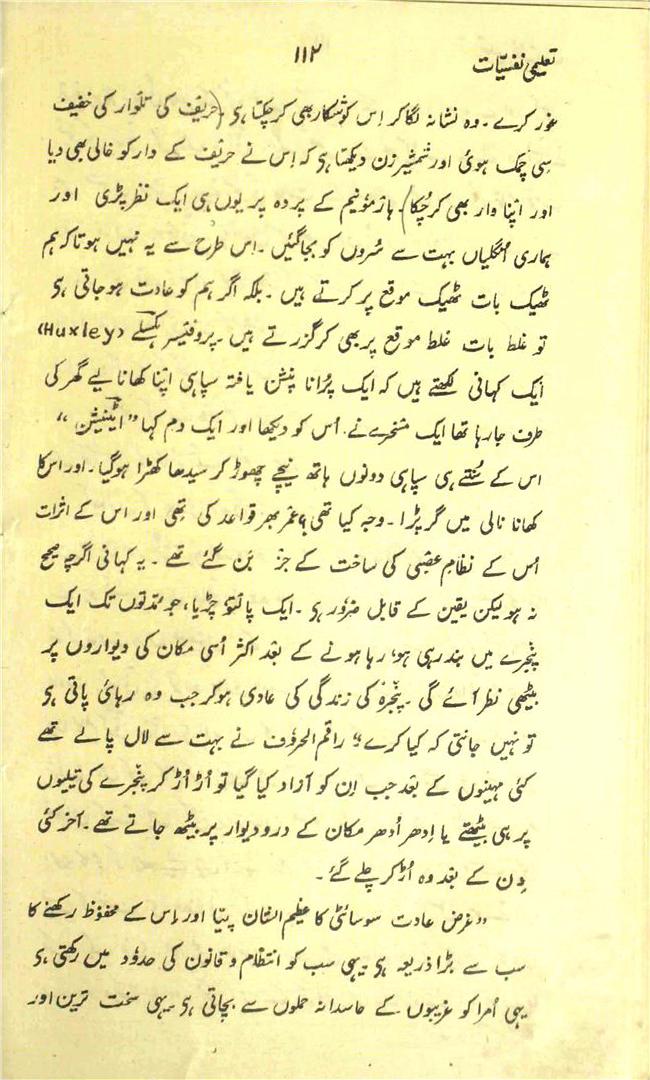 تعلیمی نفسیّات
۱۱۲
غور کرے ۔ وہ نشانہ لگا کر اِس کو شکار بھی کر چکتا ہی (حریف کی تلوار کی خفیف
سِی چمک ہوئ اور شمشیر زن دیکھتا ہی کہ اِس نے حریف کے وار کو خالی بھی دیا
اور اپنا وار بھی کر چُکا) ۔ ہارمونیم کے پردہ پر یوں ہی ایک نظر پڑی اور
ہماری اُنگلیاں بہت سے سُروں کو بجا گئیں ۔ اِس طرح سے یہ نہیں ہوتا کہ ہم
ٹھیک بات ٹھیک موقع پر کرتے ہیں ۔ بلکہ اگر ہم کو عادت ہو جاتی ہی
تو غلط بات غلط موقع پر بھی کر گزرتے ہیں ۔ پروفیسر ہکسلے (Huxley)
ایک کہانی لکھتے ہیں کہ ایک پُرانا پنشن یافتہ سپاہی اپنا کھانا لیے گھر کی
طرف جا رہا تھا ایک مسخرے نے اُس کو دیکھا اور ایک دم کہا ”اٹینشن“
اس کے سُنتے ہی سپاہی دونوں ہاتھ نیچے چھوڑ کر سیدھا کھڑا ہوگیا ۔ اور اس کا
کھانا نالی میں گر پڑا ۔ وجہ کیا تھی ؟ عمر بھر قواعد کی تھی اور اس کے اثرات
اُس کے نظامِ عصبی کی ساخت کے جز بَن گئے تھے ۔ یہ کہانی اگرچہ صحیح
نہ ہو لیکن یقین کے قابل ضرور ہی ۔ ایک پالتو چڑیا، جو مُدّتوں تک ایک
پنجرے میں بند رہی ہو، رہا ہونے کے بعد اکثر اُسی مکان کی دیواروں پر
بیٹھی نظر آئے گی ۔ پنجرہ کی زندگی کی عادی ہوکر جب وہ رہائ پاتی ہی
تو نہیں جانتی کہ کیا کرے؟ راقم الحروف نے بہت سے لال پالے تھے
کئی مہینوں کے بعد جب اِن کو آزاد کیا گیا تو اُڑ اُڑ کر پنجرے کی تیلیوں
پر ہی بیٹھتے یا اِدھر اُدھر مکان کے در و دیوار پر بیٹھ جاتے تھے ۔ آخر کئی
دِن کے بعد وہ اُڑ کر چلے گئے ۔
”غرض عادت سوسائٹی کا عظیم الشّان پہیّا اور اِس کے محفوظ رکھنے کا
سب سے بڑا ذریعہ ہی ۔ یہی سب کو انتظام و قانون کی حدود میں رکھتی ہی
یہی اُمرا کو غریبوں کے حاسدانہ حملوں سے بچاتی ہی ۔ یہی سخت ترین اور